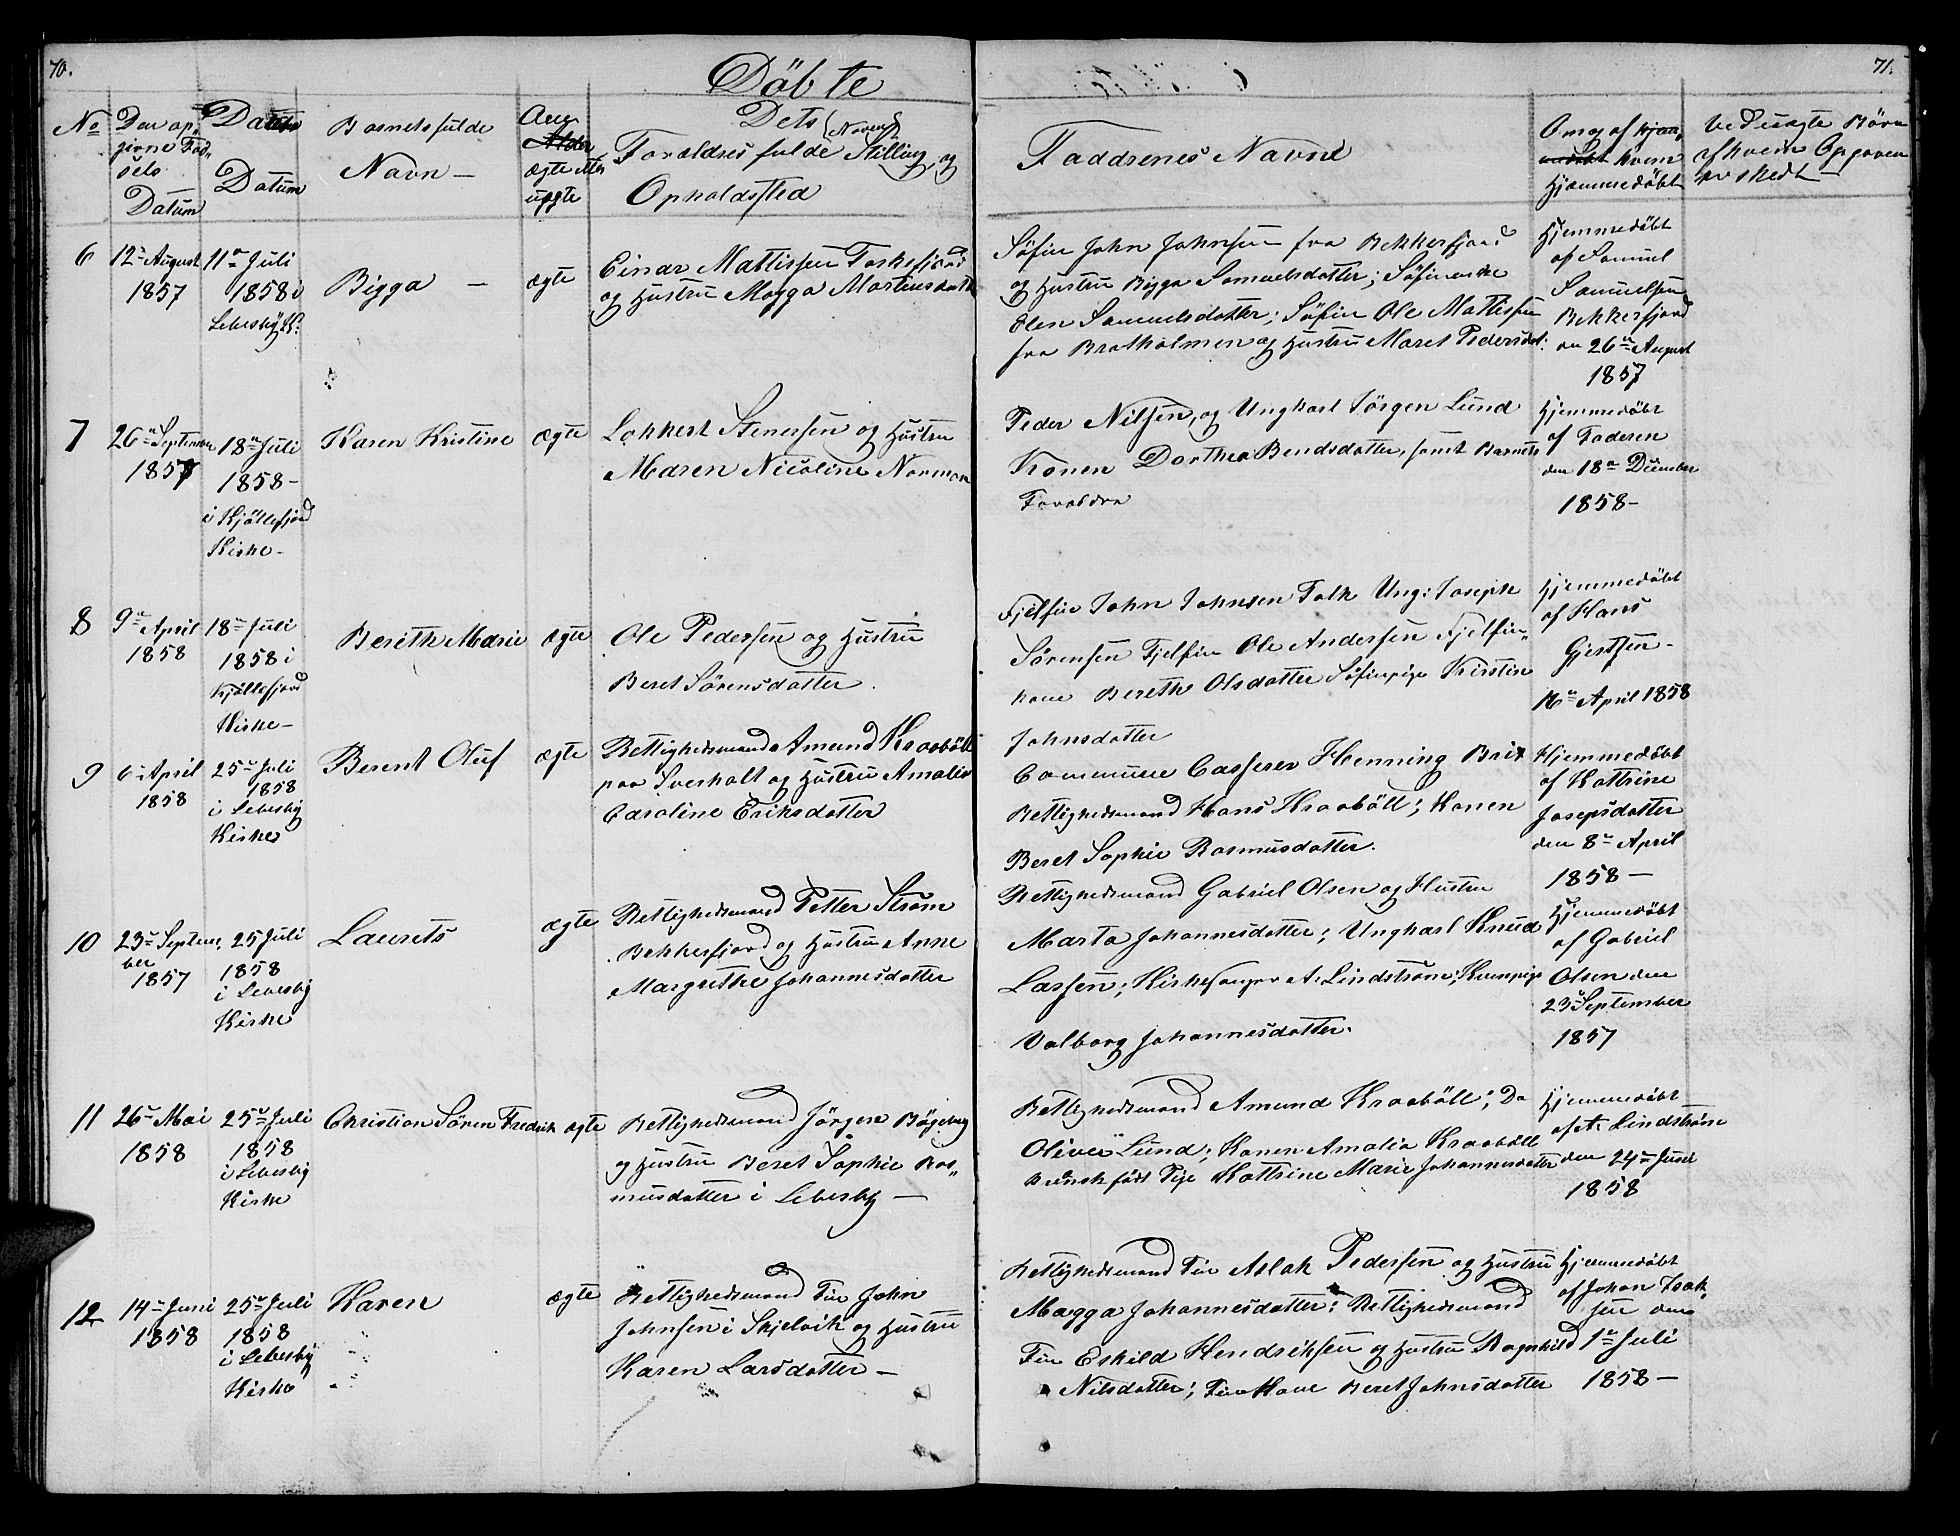 70.
Döbte
71.
No
Den op,
givne Fød,
sels
Datum
Daabs
Datum
Barnets fulde
Navn —
Ang
ægte eller
uægte
Dets
Forældres fulde (Navn) Stilling og
Opholdssted
Faddrenes Navne
Om og af
hvem
Hjemmedöbt
Ved uægte Börn
af hvem Opgaven
er skedt
6
12te August
1857
11te Juli
1858 i
Lebesby K:
Bigga —
ægte
Einar Mattissen Torskefjord
og Hustru Magga Mortensdatter
Söfin John Johnsen fra Bekkerfjord
og Hustru Bigga Samuelsdatter; Söfinenke
Elen Samuelsdatter; Söfin Ole Mattissen
fra Bratholmen og Hustru Maret Pedersdat:
Hjemmedöbt
af Samuel
Samuelsen
Bekkerfjord
den 26te August
1857
7
26te September
1857
18te Juli
1858 —
i Kjöllefjord
Kirke —
Karen Kristine
ægte
Lokkert Stenersen og Hustru
Maren Nicoline Norman
Peder Nilsen, og Ungkarl Jörgen Lund
Konen Dorthea Bendsdatter, samt Barnets
Forældre
Hjemmedöbt
af Faderen
den 18de December
1858 —
8
9de April
1858
18de Juli
1858 i
Kjöllefjord
Kirke —
Bereth Marie
ægte
Ole Pedersen og Hustru
Beret Sörensdatter.
Fjelfin John Johnsen Falk Ung: Joseph
Sörensen Fjelfin Ole Andersen Fjelfin-
kone Berethe Olsdatter Söfinpige Kirsten
Johnsdatter
Hjemmedöbt
af Hans
Gjertsen —
16de April 1858
9
6te April
1858
25de Juli
1858
i Lebesby
Kirke
Berent Oluf
ægte
Rettighedsmand Amund Kraaböll
paa Sverholt og Hustru Amalia
Caroline Eriksdatter
Commune Casserer Henning Brix
Rettighedsmand Hans Kraaböll; Konen
Beret Sophie Rasmusdatter.
Hjemmedöbt
af Kattrine
Josepsdatter
den 8de April
1858 —
10
23de Septem,
ber
1857
25 Juli
1858
i Lebesby
Kirke
Laurets
ægte
Rettighedsmand Petter Ström
Bekkerfjord og Hustru Anne
Margrethe Johannesdatter
Rettighedsmand Gabriel Olsen og Hustru
Marta Johannesdatter; Ungkarl Knud
Lassen; Kirkesanger A: Lindström; Kvenpige
Valborg Johannesdatter.
Hjemmedöbt
af Gabriel
Olsen den
23de September
1857
11
26de Mai
1858
25de Juli
1858
i Lebesby
Kirke
Christian Sören Fredrik
ægte
Rettighedsmand Jörgen Bögeberg
og Hustru Beret Sophie Ras,,
musdatter i Lebesby —
Rettighedsmand Amund Kraaböll; Do
Oliver Lund; Konen Amalia Kraaböll
Svensk födt Pige Kattrine Marie Johannesdatter
Hjemmedöbt
af A: Lindström
den 24de Juni
1858
12
14de Juni
1858
25de Juli
1858
i Lebesby
Kirke
Karen
ægte
Rettighedsmand Fin John
Johnsen i Skjelvik og Hustru
Karen Larsdatter —
Rettighedsmand Fin Aslak Pedersen og Hustru
Magga Johannesdatter; Rettighedsmand
Fin Eskild Hendriksen og Hustru Ragnhild
Nilsdatter; Fin Kone Beret Johnsdatter
Hjemmedöbt
af Johan Isak,
sen den
1de Juli
1858 —